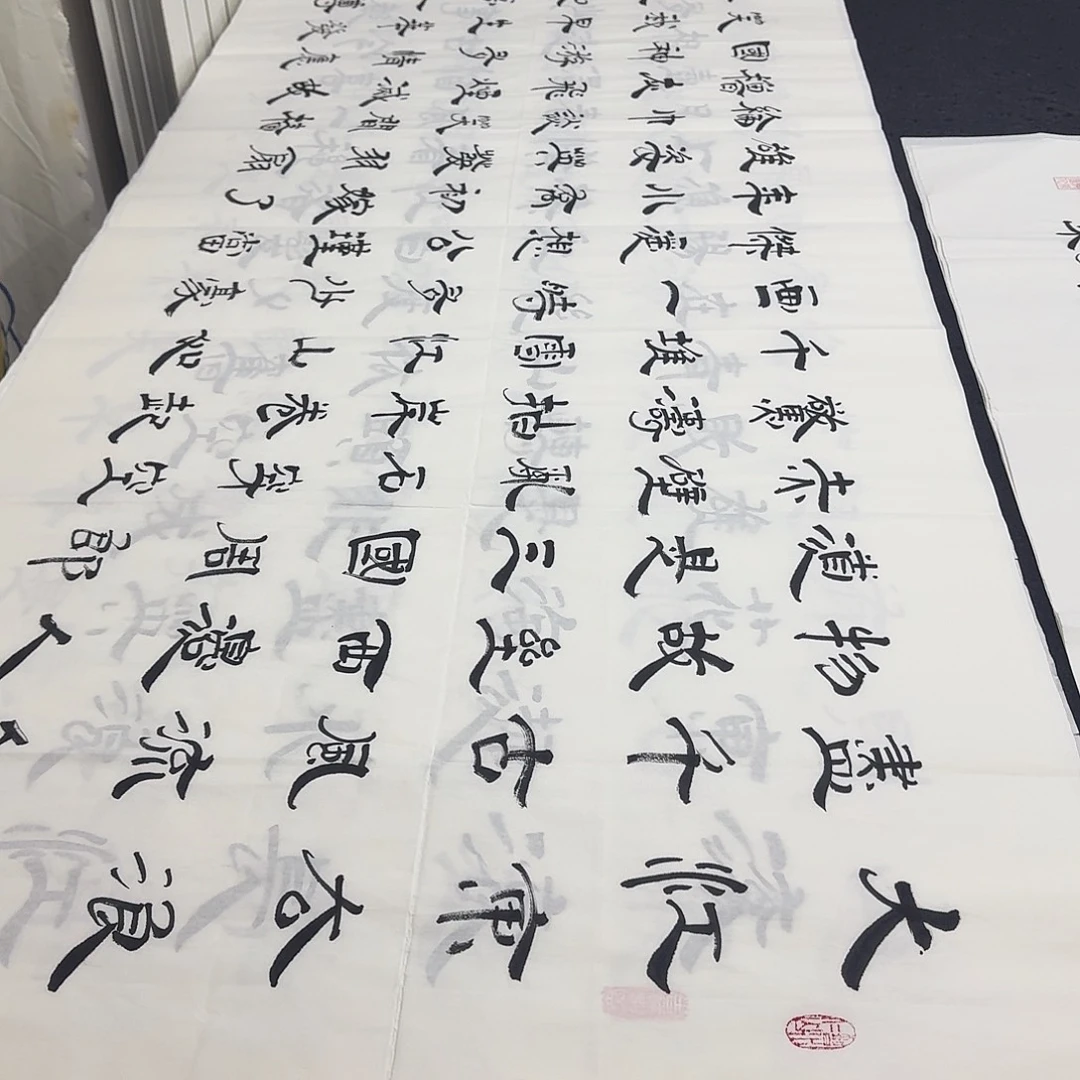 大江東去浪
盡千古風流
物故壘西邊人
道是三國周郎
赤壁亂石穿空
驚濤拍岸卷起
千堆雪江山如
畫一時多少豪
傑遙想公瑾當
年小喬初嫁了
雄姿英發羽扇
綸巾談笑間檣
櫓灰飛煙滅故
國神游多情應
笑我早生華髮